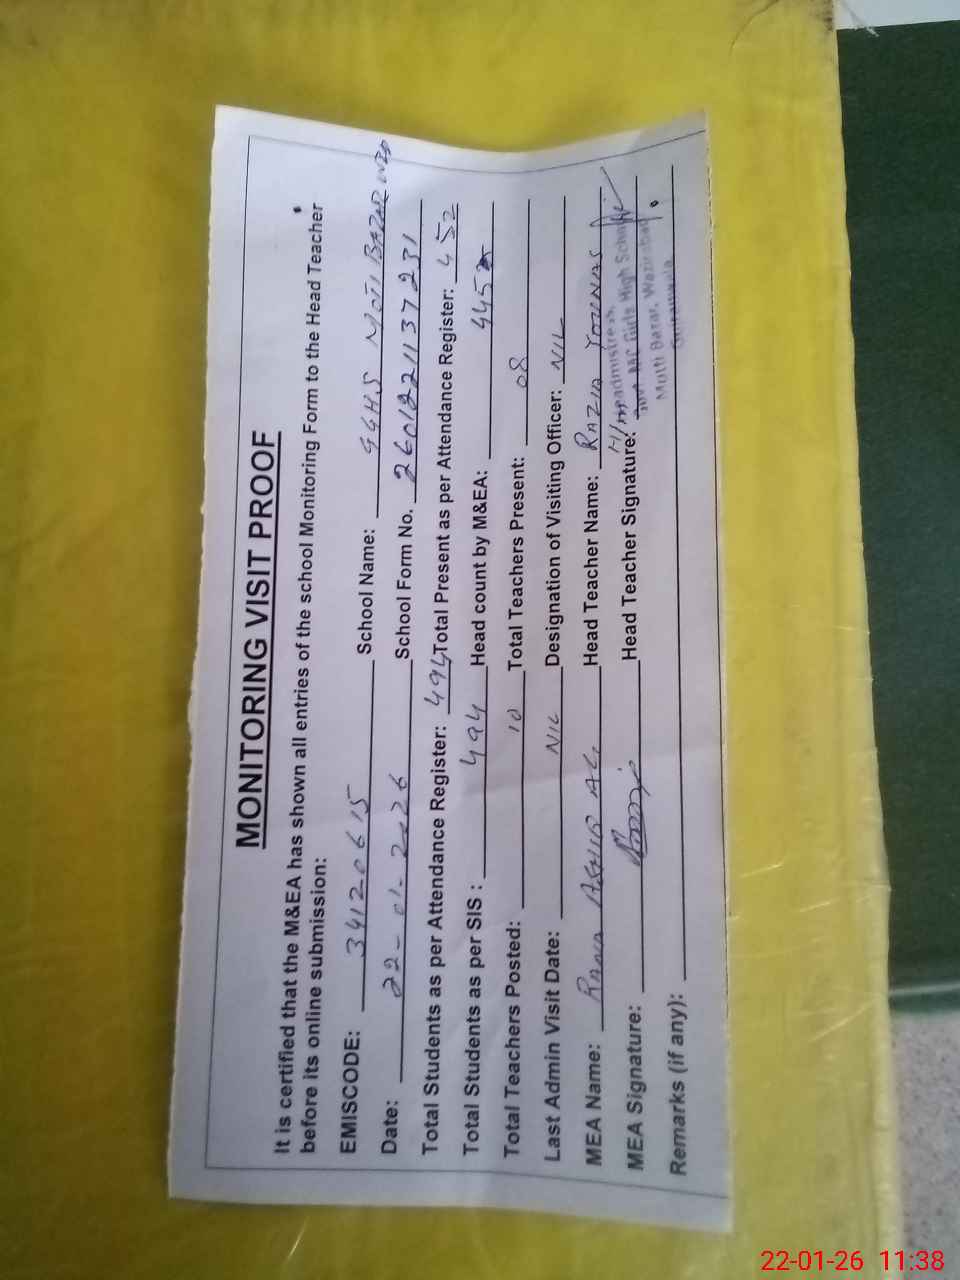 MONITORING VISIT PROOF
It is certified that the M&EA has shown all entries of the school Monitoring Form to the Head Teacher
before its online submission:
EMISCODE: 34120615 School Name: GGHS MOTI BAZAR WZD
Date: 22-01-2026 School Form No. 2601221137231
Total Students as per Attendance Register: 494 Total Present as per Attendance Register: 452
Total Students as per SIS : 494 Head count by M&EA: 445
Total Teachers Posted: 10 Total Teachers Present: 08
Last Admin Visit Date: NIL Designation of Visiting Officer: NIL
MEA Name: RANA Head Teacher Name: RAZIA YOUNAS
MEA Signature: Head Teacher Signature:
Headmistress,
Govt. MC Girls High School
Multi Bazar, Wazirabad
Gujranwala
Remarks (if any):
22-01-26 11:38